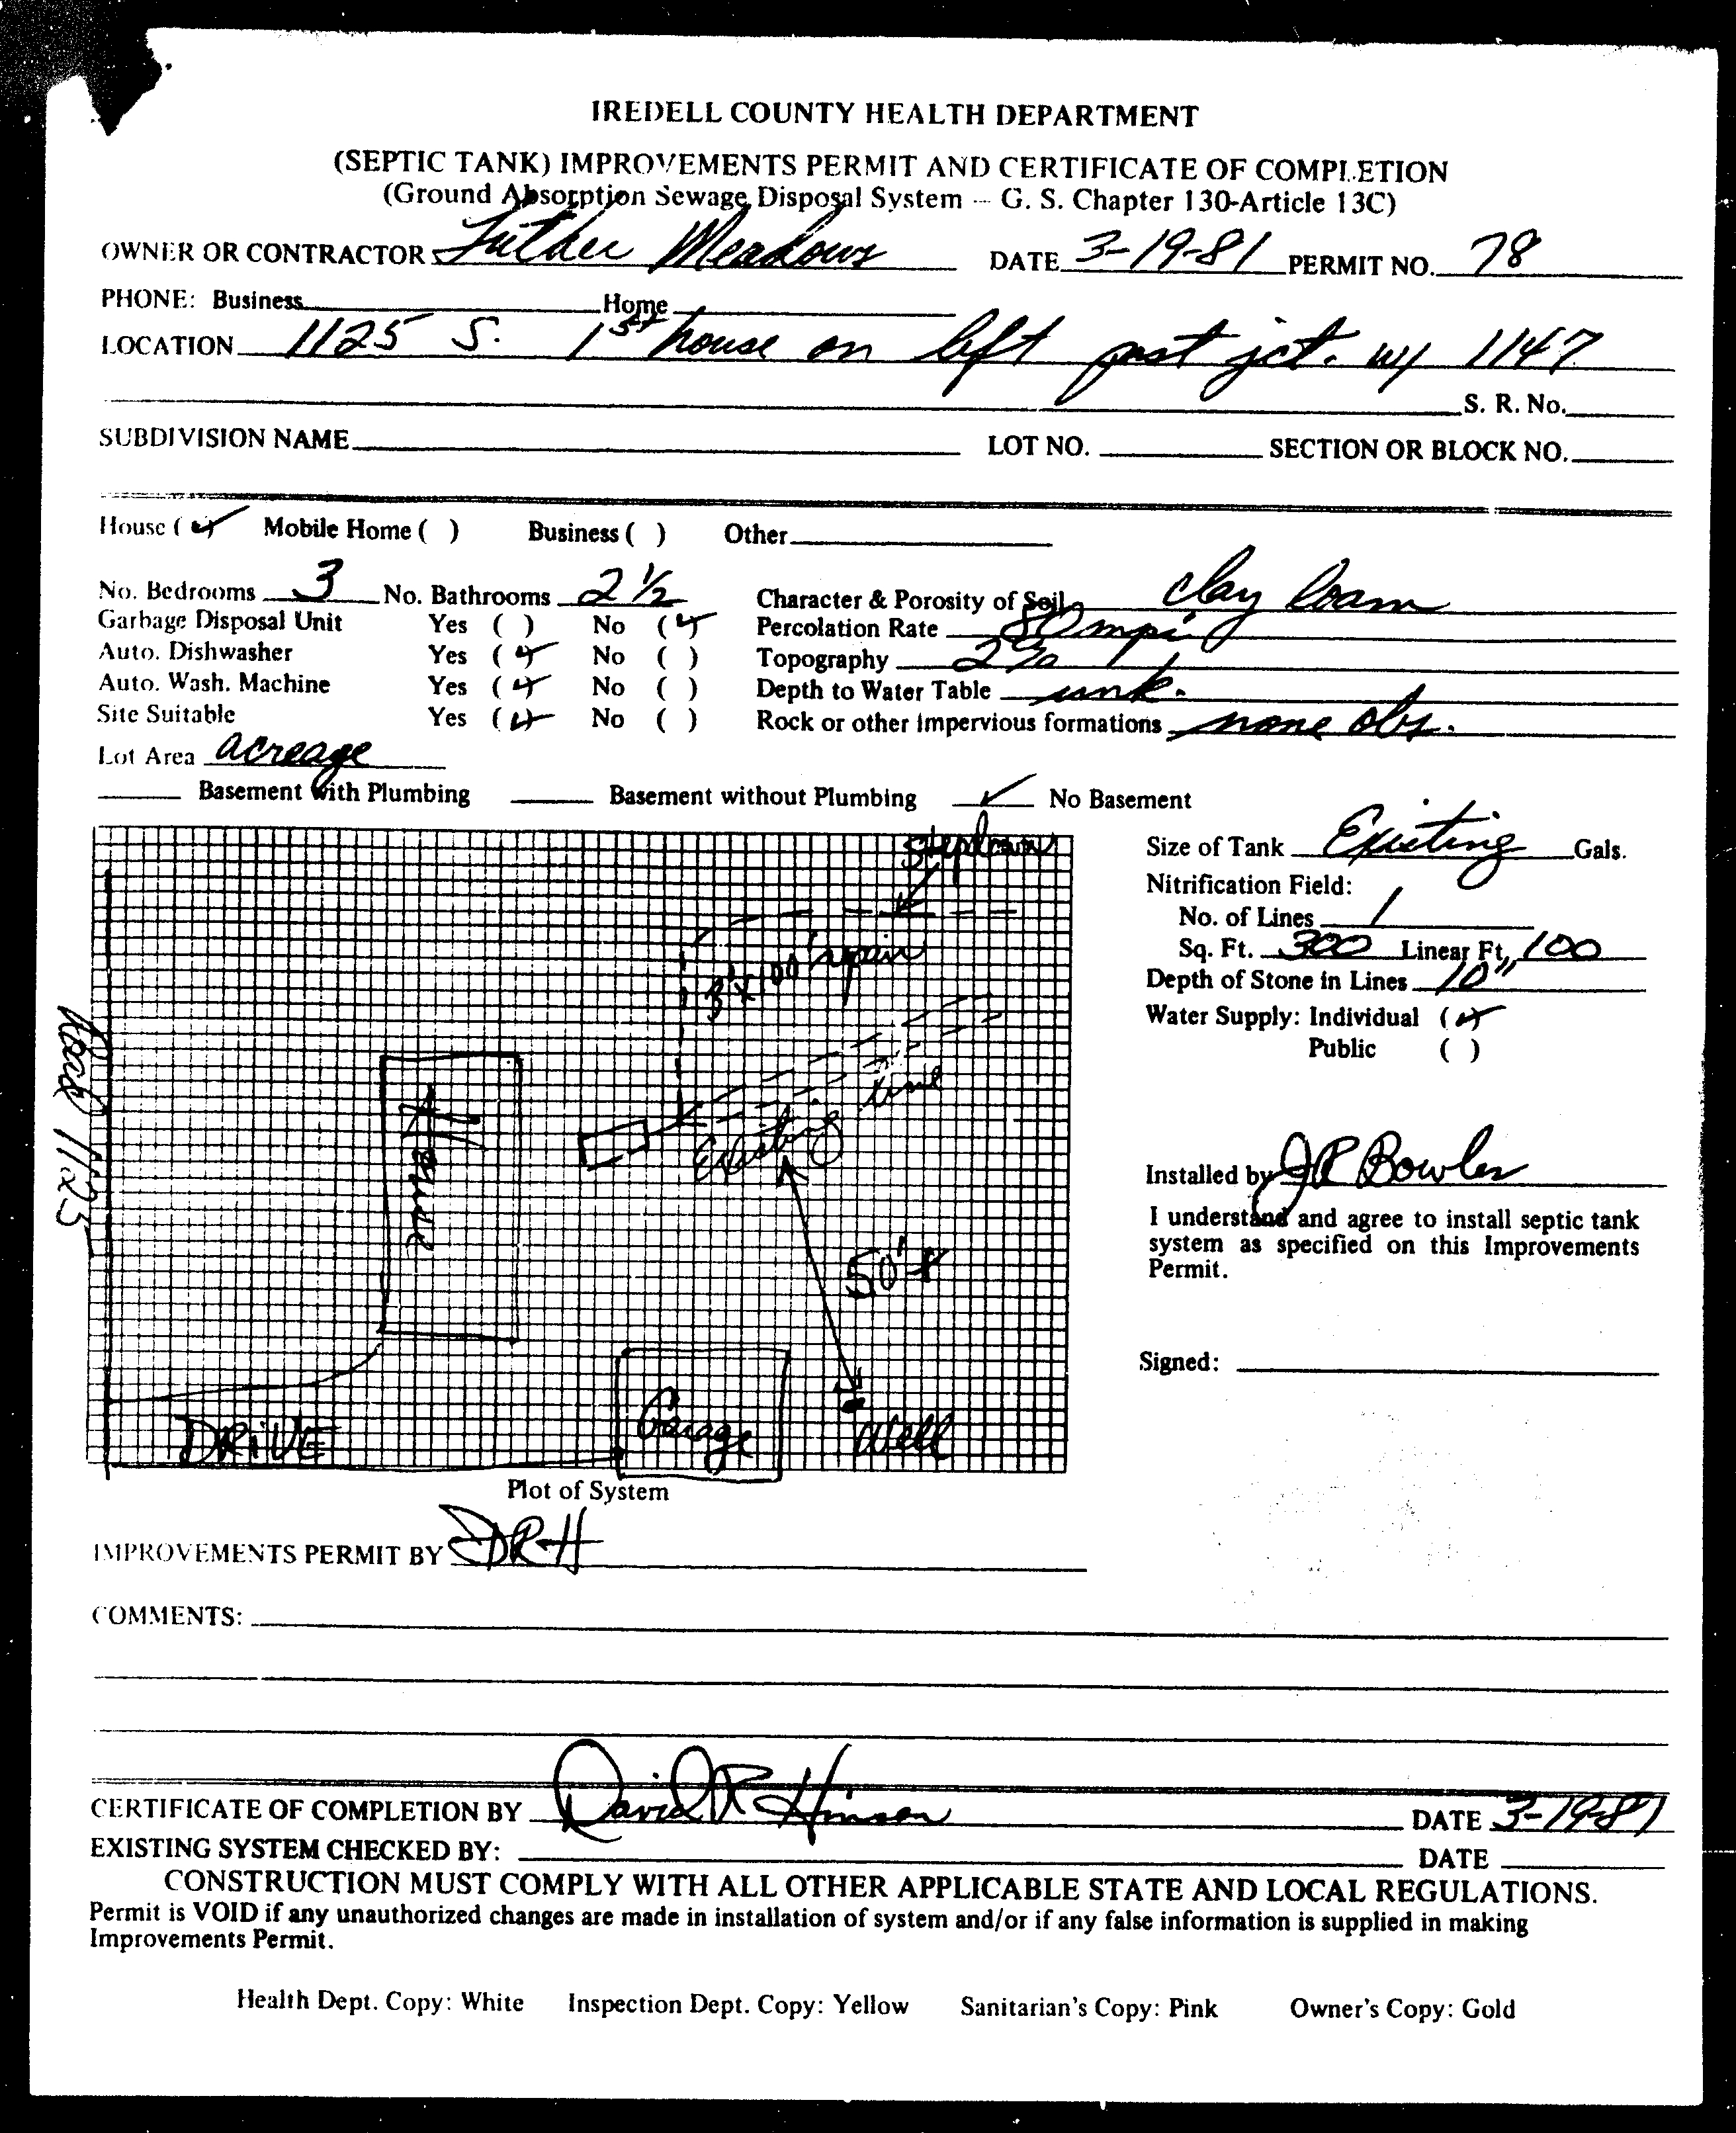 IREDELL COUNTY HEALTH DEPARTMENT
(SEPTIC TANK) IMPROVEMENTS PERMIT AND CERTIFICATE OF COMPLETION
(Ground Absorption Sewage Disposal System -- G. S. Chapter 130-Article 13C)
OWNER OR CONTRACTOR Luther Meadows DATE 3-19-81 PERMIT NO. 78
PHONE: Business Home
LOCATION 1125 S. 1st house on left past jct. w/ 1147
S. R. No.
SUBDIVISION NAME LOT NO. SECTION OR BLOCK NO.
House (✓) Mobile Home ( ) Business ( ) Other
No. Bedrooms 3 No. Bathrooms 2 1/2 Character & Porosity of Soil clay loam
Garbage Disposal Unit Yes ( ) No (✓) Percolation Rate 80 mpi
Auto. Dishwasher Yes (✓) No ( ) Topography 2%
Auto. Wash. Machine Yes (✓) No ( ) Depth to Water Table unk.
Site Suitable Yes (✓) No ( ) Rock or other impervious formations none obs.
Lot Area acreage
Basement with Plumbing Basement without Plumbing ✓ No Basement
Stepdown
3' x 100' repair
Existing line
House
Road 1125
50'+
Garage
Well
DRIVE
Plot of System
Size of Tank Existing Gals.
Nitrification Field:
No. of Lines 1
Sq. Ft. 300 Linear Ft. 100
Depth of Stone in Lines 10"
Water Supply: Individual (✓)
Public ( )
Installed by JR Bowles
I understand and agree to install septic tank
system as specified on this Improvements
Permit.
Signed:
IMPROVEMENTS PERMIT BY DRH
COMMENTS:
CERTIFICATE OF COMPLETION BY David R Hinson DATE 3-19-81
EXISTING SYSTEM CHECKED BY: DATE
CONSTRUCTION MUST COMPLY WITH ALL OTHER APPLICABLE STATE AND LOCAL REGULATIONS.
Permit is VOID if any unauthorized changes are made in installation of system and/or if any false information is supplied in making
Improvements Permit.
Health Dept. Copy: White Inspection Dept. Copy: Yellow Sanitarian's Copy: Pink Owner's Copy: Gold